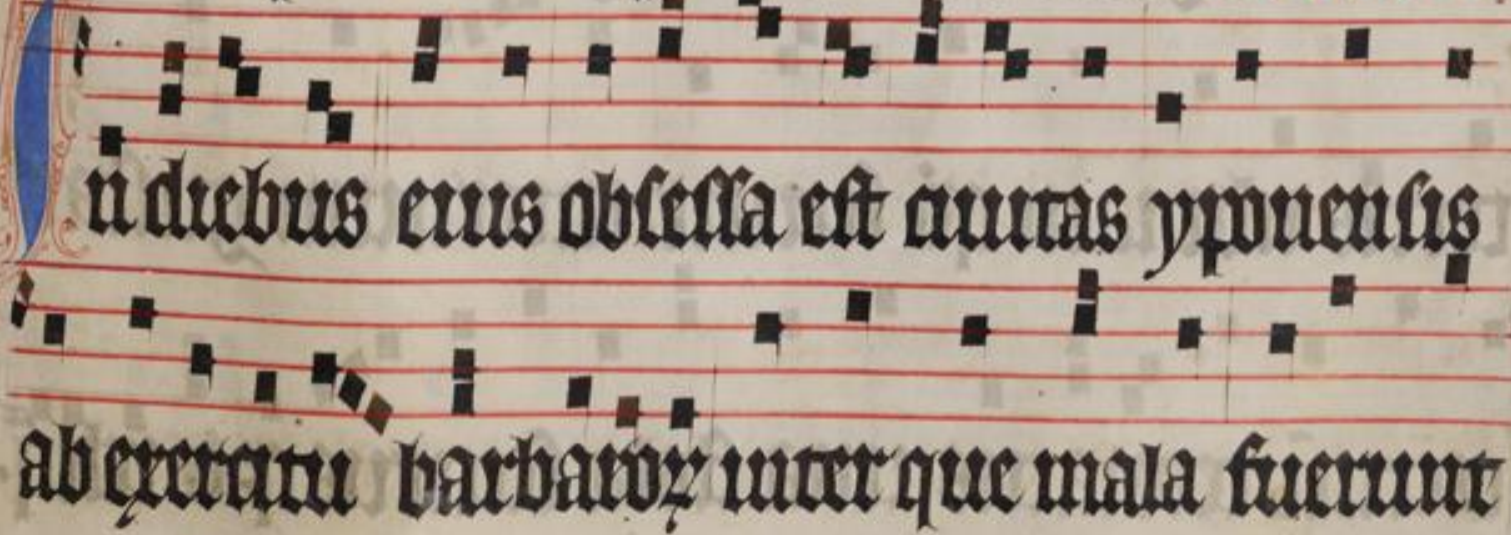 In diebus eius obsessa est ciuitas yponensis
ab exercitu barbaroꝝ inter que mala fuerunt